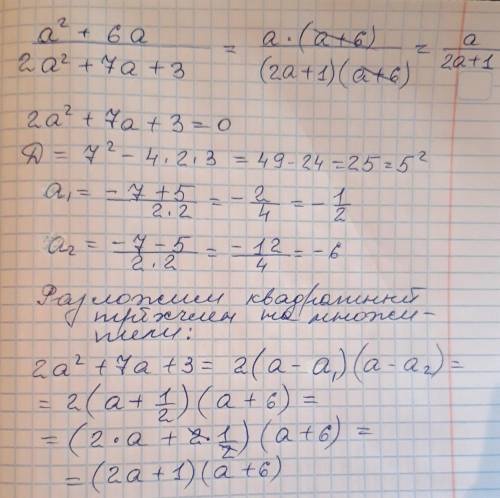 a² + 6a / 2a² + 7a + 3 = a · (a+6) / (2a+1)(a+6) = a / 2a+1
2a² + 7a + 3 = 0
Д = 7² - 4·2·3 = 49-24 = 25 = 5²
a₁ = -7+5 / 2·2 = -2/4 = -1/2
a₂ = -7-5 / 2·2 = -12/4 = -6
Разложим квадратный
трёхчлен на множи-
тели:
2a² + 7a + 3 = 2(a - a₁)(a - a₂) =
= 2(a + 1/2)(a + 6) =
= (2·a + 2·1/2)(a + 6) =
= (2a + 1)(a + 6)